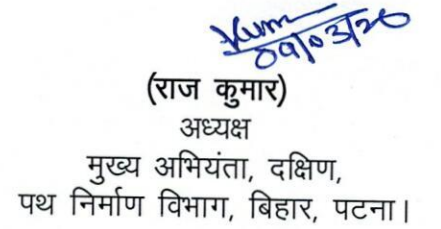 Kum
09/03/20
(राज कुमार)
अध्यक्ष
मुख्य अभियंता, दक्षिण,
पथ निर्माण विभाग, बिहार, पटना।